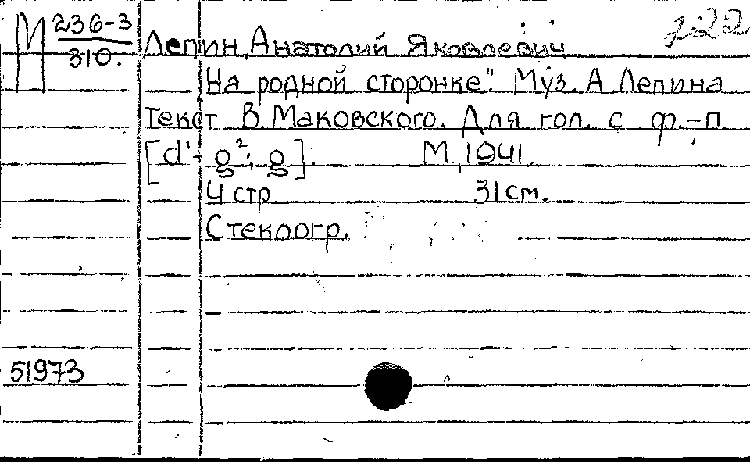 М 236-3
310.
222
Лепин, Анатолий Яковлевич
На родной сторонке" Муз. А Лепина
Текст В. Маковского. Для гол. с ф.-п.
[d¹-g²; g]. М, 1941.
4 стр 31 см.
Стеклогр.
51973